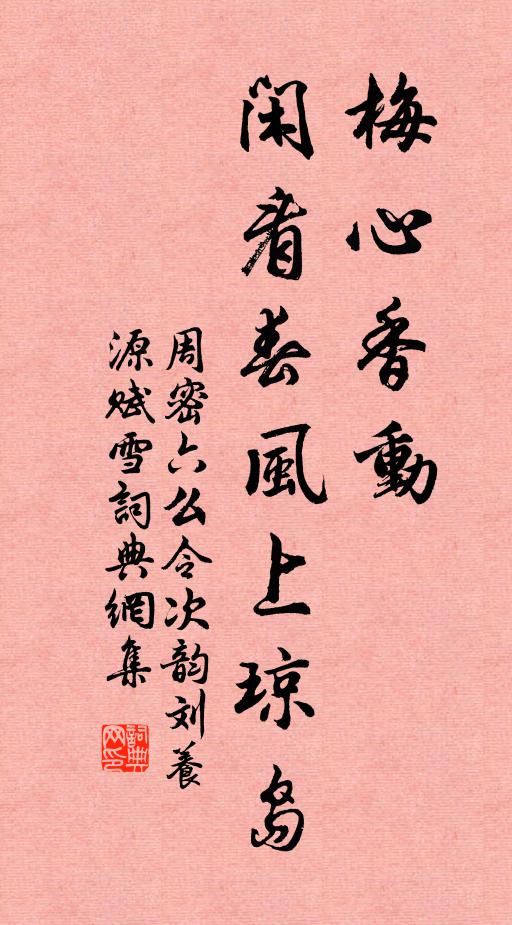 梅心香動
闲看春風上琼島
周密六么令次韵刘養
源赋雪詞典網集
詞典
网印